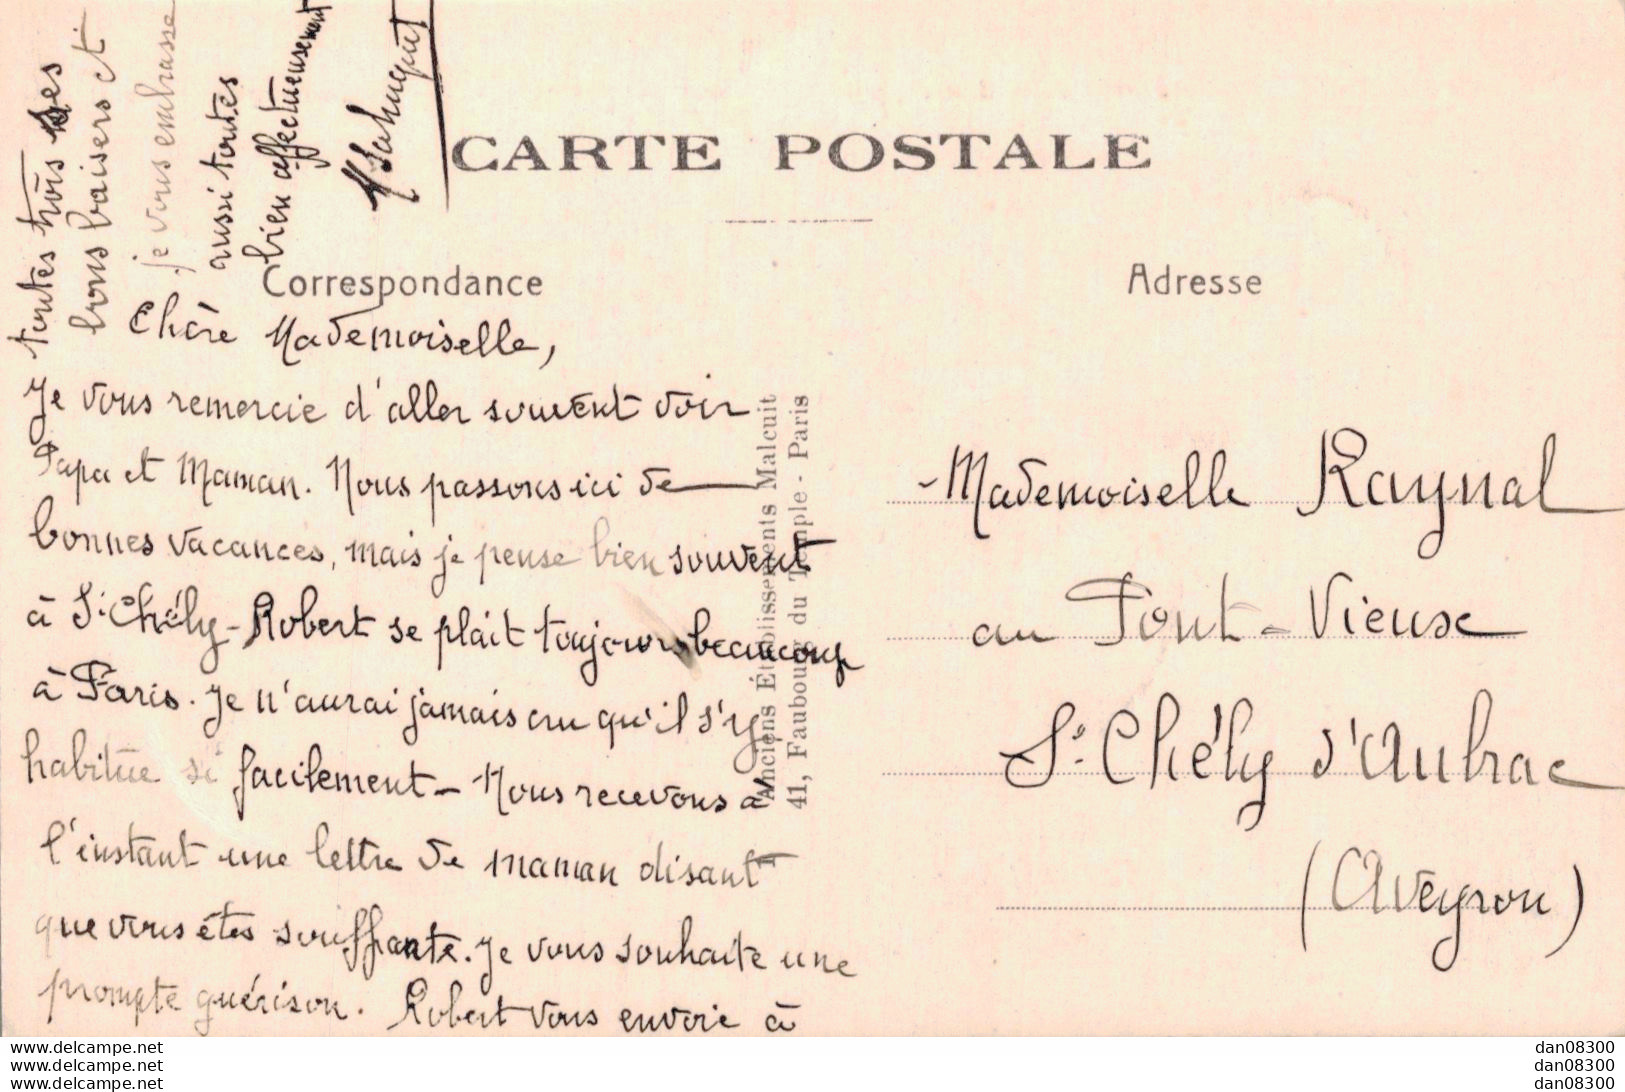 CARTE POSTALE
Correspondance
Adresse
Chère Mademoiselle,
Je vous remercie d'aller souvent voir
Papa et Maman. Nous passons ici de
bonnes vacances, mais je pense bien souvent
à St Chély - Robert se plait toujours beaucoup
à Paris. Je n'aurai jamais cru qu'il s'y
habitue si facilement - Nous recevons à
l'instant une lettre de maman disant
que vous êtes souffrante. Je vous souhaite une
prompte guérison. Robert vous envoie à
toutes trois ses
bons baisers et
je vous embrasse
aussi toutes
bien affectueusement
Anciens Établissements Malcuit
41, Faubourg du Temple - Paris
Mademoiselle Raynal
au Pont-Vieux
St Chély d'Aubrac
(Aveyron)
www.delcampe.net
www.delcampe.net
www.delcampe.net
dan08300
dan08300
dan08300